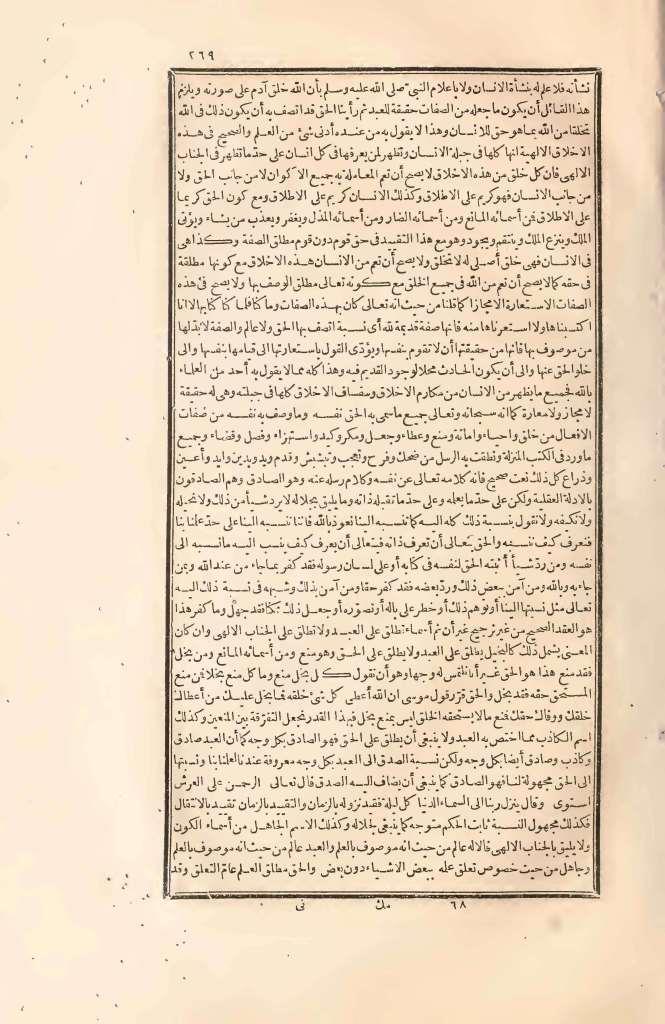 ٢٦٩
نشأته فلا علم له بنشأة الانسان ولا باعلام النبي صلى الله عليه وسلم بأن الله خلق آدم على صورته ويلزم
هذا القائل أن يكون ما جعله من الصفات حقيقة للعبد ثم رأينا الحق قد اتصف به أن يكون ذلك فى الله
تخلقا من الله بما هو حق للانسان وهذا لا يقول به من عنده أدنى شئ من العلم والصحيح فى هذه
الاخلاق الالهية انها كلها فى جبلة الانسان وتظهر لمن يعرفها فى كل انسان على حدّ ما تظهر فى الجناب
الالهى فان كل خلق من هذه الاخلاق لا يصح أن تعم المعاملة به جميع الاكوان لا من جانب الحق ولا
من جانب الانسان فهو كريم على الاطلاق وكذلك الانسان كريم على الاطلاق ومع كون الحق كريما
على الاطلاق فمن أسمائه المانع ومن أسمائه الضار ومن أسمائه المذل ويغفر ويعذب من يشاء ويؤتى
الملك وينزع الملك وينتقم ويجود وهو مع هذا التقييد فى حق قوم دون قوم مطلق الصفة وكذا هى
فى الانسان فهى خلق أصلى له لا تخلق ولا يصح أن تعم من الانسان هذه الاخلاق مع كونها مطلقة
فى حقه كما لا يصح أن تعم من الله فى جميع الخلق مع كونه تعالى مطلق الوصف بها ولا يصح فى هذه
الصفات الاستعارة الا مجازا كما قلنا من حيث انه تعالى كان بهذه الصفات وما كنا فلما كنا كنا بها لا انا
اكتسبناها ولا استعرناها منه فانها صفة قديمة لله أى نسبة اتصف بها الحق ولا عالم والصفة لا بدّ لها
من موصوف بها فانها من حقيقتها أن لا تقوم بنفسها ويؤدّى القول باستعارتها الى قيامها بنفسها والى
خلو الحق عنها والى أن يكون الحادث محلا لوجود القديم فيه وهذا كله مما لا يقول به أحد من العلماء
بالله فجميع ما يظهر من الانسان من مكارم الاخلاق وسفساف الاخلاق كلها فى جبلته وهى له حقيقة
لا مجاز ولا معارة كما انه سبحانه وتعالى جميع ما سمى به الحق نفسه وما وصف به نفسه من صفات
الافعال من خلق واحياء واماتة ومنع وعطاء وجعل ومكر وكيد واستهزاء وفصل وقضاء وجميع
ما ورد فى الكتب المنزلة ونطقت به الرسل من ضحك وفرح وتعجب وتبشبش وقدم ويد ويدين وايد وأعين
وذراع كل ذلك نعت صحيح فانه كلامه تعالى عن نفسه وكلام رسله عنه وهو الصادق وهم الصادقون
بالادلة العقلية ولكن على حدّ ما يعلمه وعلى حدّ ما تقبله ذاته وما يليق بجلاله لا يردّ شيأ من ذلك ولا نحيله
ولا نكيفه ولا نقول بنسبة ذلك كله اليه كما ننسبه الينا نعوذ بالله فاننا ننسبه الينا على حدّ علمنا بنا
فنعرف كيف ننسبه والحق يتعالى أن تعرف ذاته فيتعالى أن يعرف كيف ينسب اليه ما نسبه الى
نفسه ومن ردّ شيأ أثبته الحق لنفسه فى كتابه أو على لسان رسوله فقد كفر بما جاء من عند الله وبمن
جاء به وبالله ومن آمن ببعض ذلك وردّ بعضه فقد كفر حقا ومن آمن بذلك وشبهه فى نسبة ذلك اليه
تعالى مثل نسبتها الينا أو توهم ذلك أو خطر على باله أو تصوّره أو جعل ذلك ممكنا فقد جهل وما كفر هذا
هو العقد الصحيح من غير ترجيح غير أن ثم أسماء تطلق على العبد ولا تطلق على الجناب الالهى وان كان
المعنى يشمل ذلك كالبخيل يطلق على العبد ولا يطلق على الحق وهو منع ومن أسمائه المانع ومن بخل
فقد منع هذا هو الحق غير أنا نلتمس له وجها وهو أن نقول كل بخل منع وما كل منع بخلا فمن منع
المستحق حقه فقد بخل والحق قرّر قول موسى ان الله أعطى كل شئ خلقه فما بخل عليك من أعطاك
خلقك ووفاك حقك فمنع ما لا يستحقه الخلق ليس بمنع بخل فبهذا القدر نجعل التفرقة بين المنعين وكذلك
اسم الكاذب مما اختص به العبد ولا ينبغى أن يطلق على الحق فهو الصادق بكل وجه كما أن العبد صادق
وكاذب وصادق أيضا بكل وجه ولكن نسبة الصدق الى العبد بكل وجه معروفة عندنا لعلمنا بنا ونسبتها
الى الحق مجهولة لنا فهو الصادق كما ينبغى أن يضاف اليه الصدق قال تعالى الرحمن على العرش
استوى وقال ينزل ربنا الى السماء الدنيا كل ليلة فقيد نزوله بالزمان والتقييد بالزمان تقييد بالانتقال
فكذلك مجهول النسبة ثابت الحكم متوجه كما ينبغى لجلاله وكذلك الاسم الجاهل من أسماء الكون
ولا يليق بالجناب الالهى فالاله عالم من حيث انه موصوف بالعلم والعبد عالم من حيث انه موصوف بالعلم
وجاهل من حيث خصوص تعلق علمه ببعض الاشياء دون بعض والحق مطلق العلم عامّ التعلق وقد
٦٨ مك نى